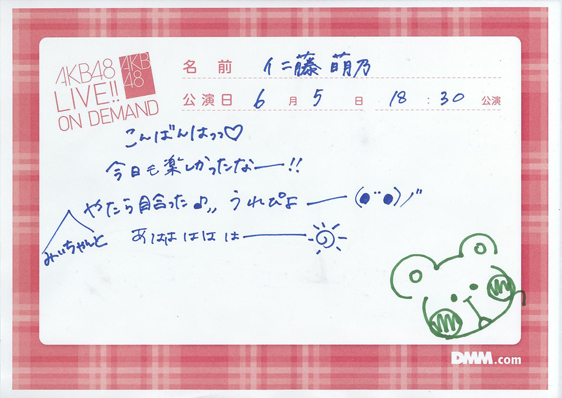 AKB48
LIVE!!
ON DEMAND
AKB
48
名前 仁藤萌乃
公演日 6月5日 18:30公演
こんばんはっっ♡
今日も楽しかったなー!!
やたら目合った♪,, うれぴよー(●¨●)ノ"
みぃちゃんと
あはははは
DMM.com